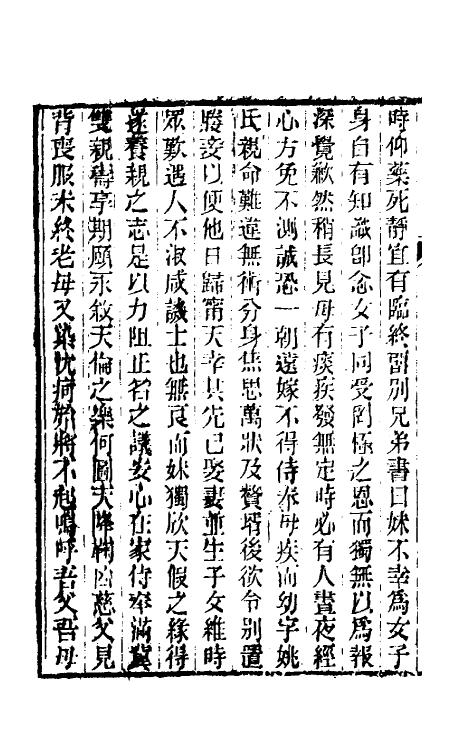 時仰藥死靜宜有臨終留別兄弟書曰妹不幸爲女子
身自有知識卽念女子同受罔極之恩而獨無以爲報
深覺歉然稍長見母有痰疾發無定時必有人晝夜經
心方免不測誠恐一朝遠嫁不得侍奉母疾而幼字姚
氏親命難違無術分身焦思萬狀及贅壻後欲令別置
媵妾以便他日歸甯天幸其先已娶妻並生子女維時
眾歎遇人不淑咸譏士也無良而妹獨欣天假之緣得
遂養親之志是以力阻正名之議安心在家侍奉滿冀
雙親壽享期頤永敘天倫之樂何圖天降鞠凶慈父見
背喪服未終老母又染沈疴始將不起嗚呼吾父吾母